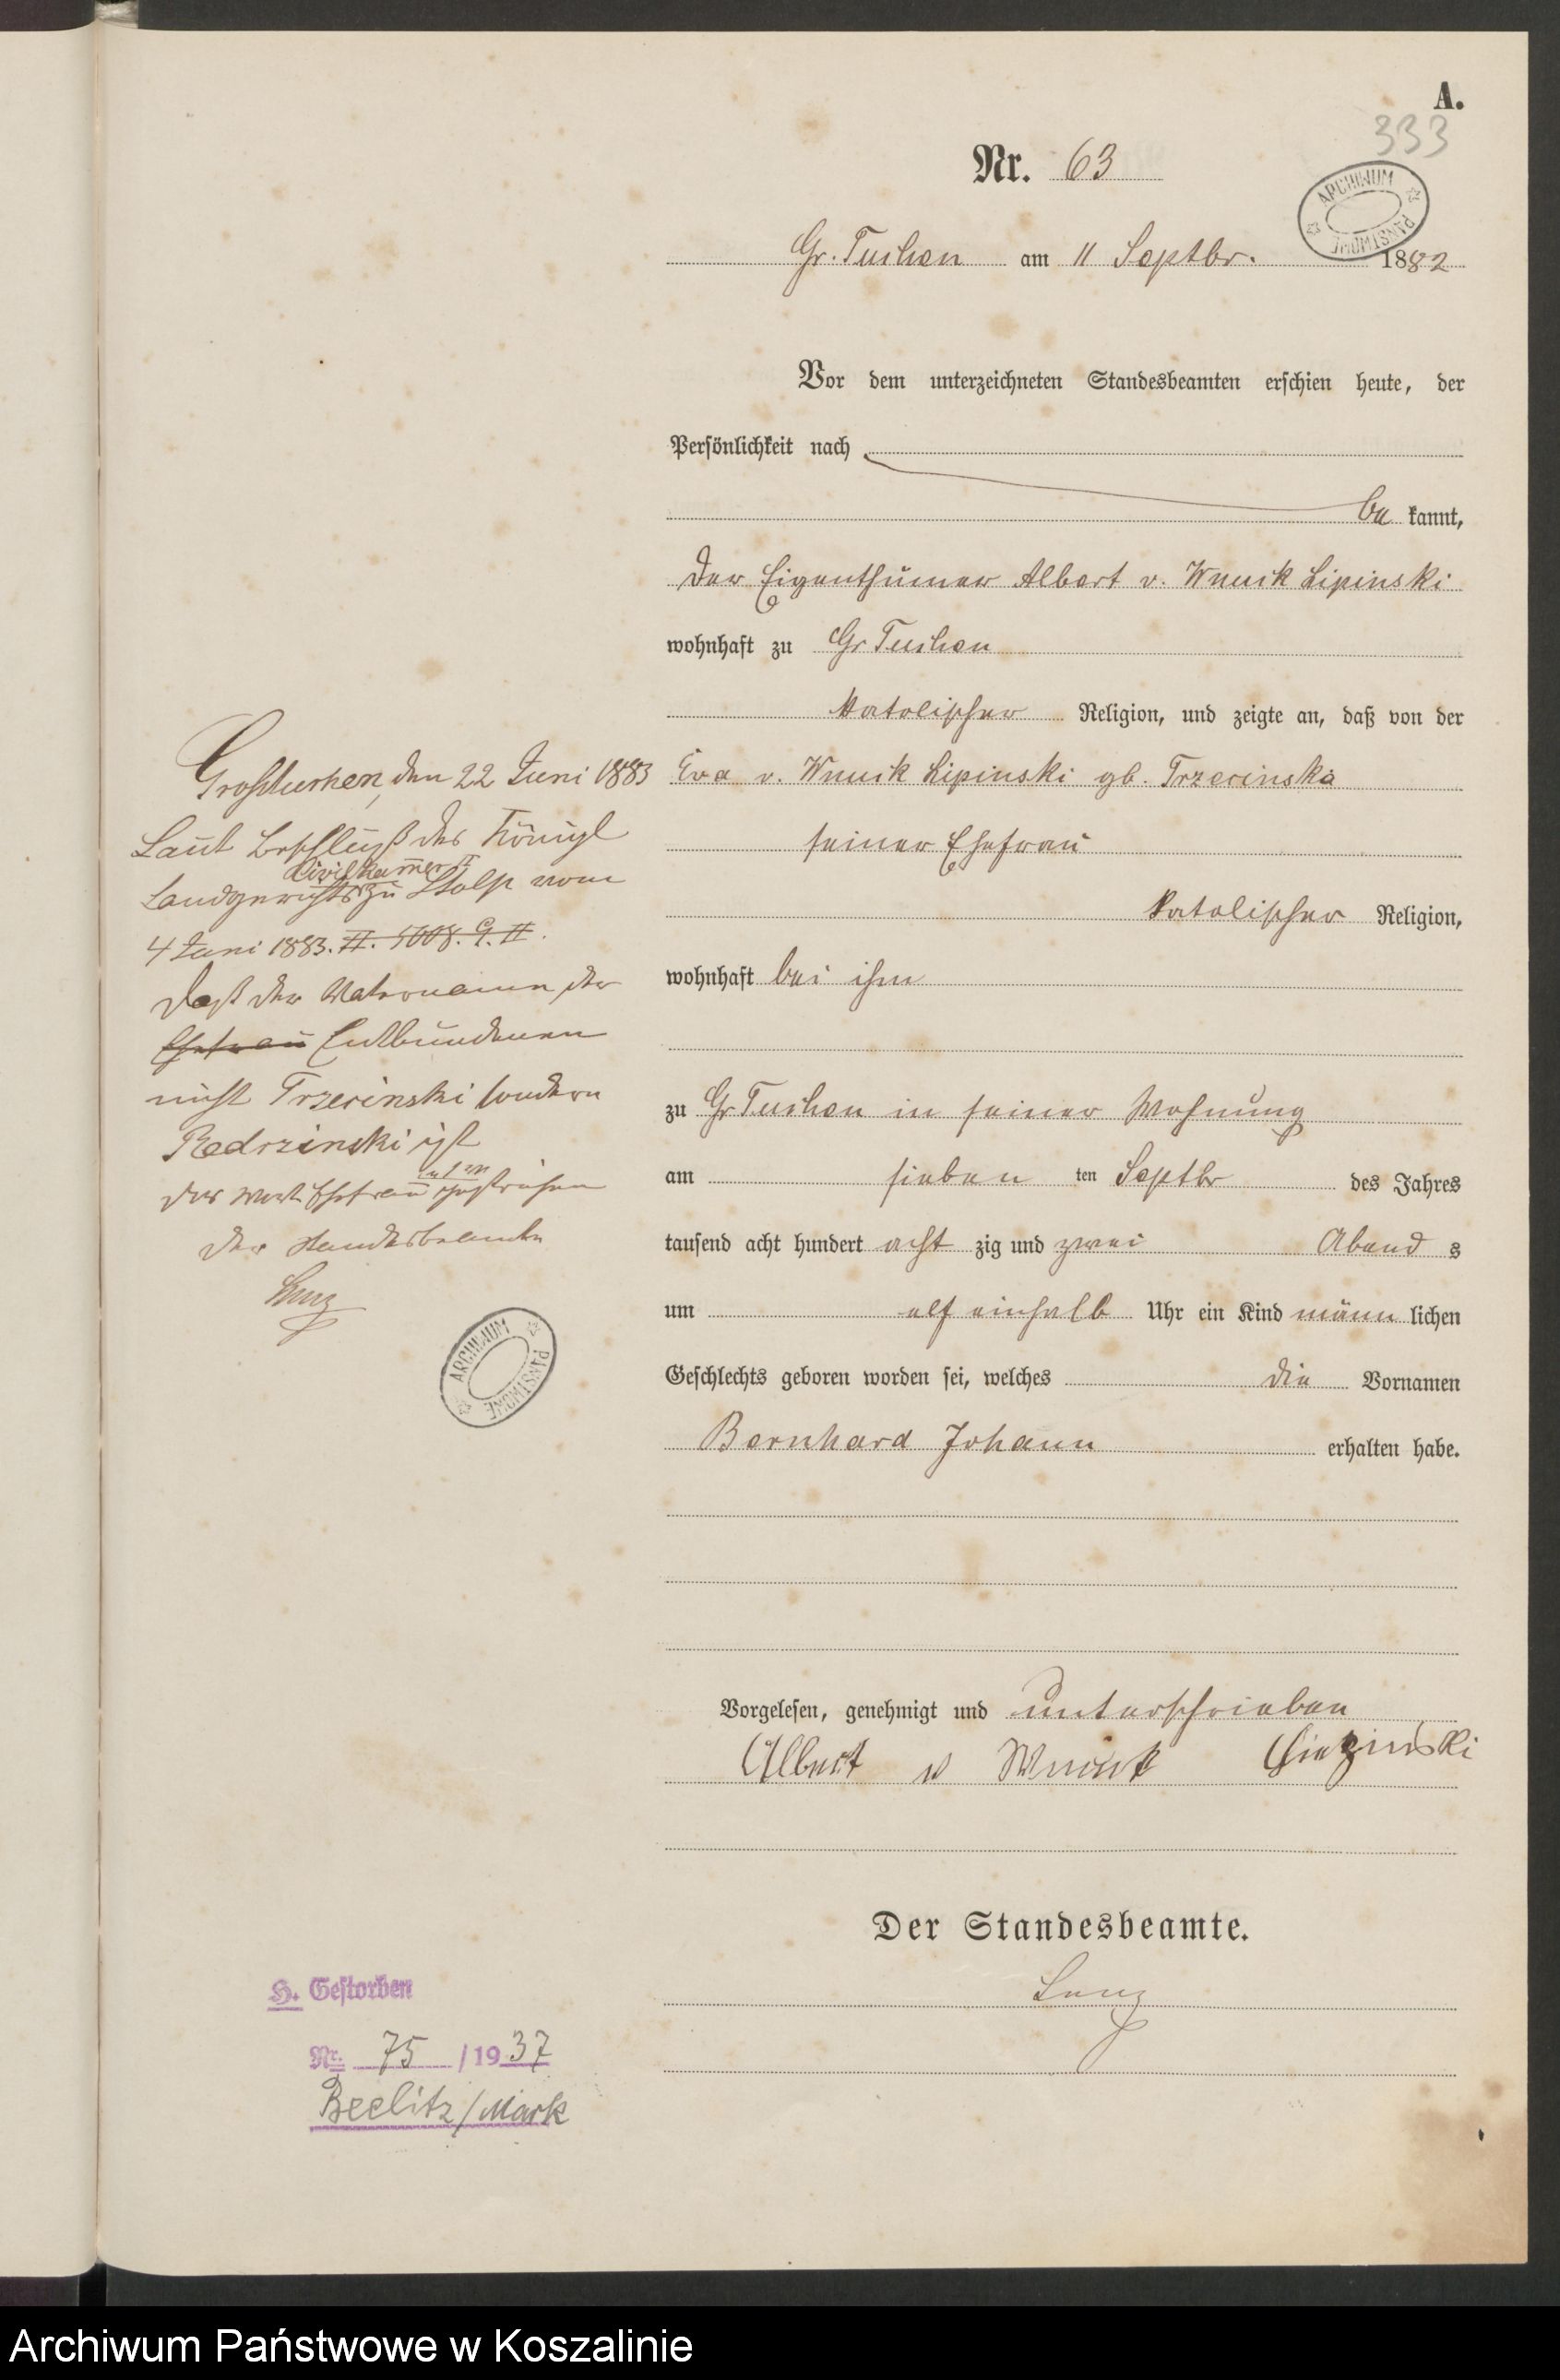 A.
333
Nr. 63
ARCHIWUM PAŃSTWOWE
Gr. Tuchen am 11 Septbr. 1882
Vor dem unterzeichneten Standesbeamten erschien heute, der
Persönlichkeit nach
be kannt,
der Eigenthümer Albert v. Wnuck Lipinski
wohnhaft zu Gr Tuchen
katolischer Religion, und zeigte an, daß von der
Eva v. Wnuck Lipinski gb. Trzecinska
seiner Ehefrau
katolischer Religion,
wohnhaft bei ihm
zu Gr Tuchen in seiner Wohnung
am sieben ten Septbr des Jahres
tausend acht hundert acht zig und zwei Abend s
um elf einhalb Uhr ein Kind männ lichen
Geschlechts geboren worden sei, welches die Vornamen
Bernhard Johann erhalten habe.
Vorgelesen, genehmigt und unterschrieben
Albert v Wnuck Lipinski
Der Standesbeamte.
Lenz
Grosstuchen, den 22 Juni 1883
Laut Beschluß des Königl
Civilkammer II
Landgerichts zu Stolp vom
4 Juni 1883.
daß der Vatername der
Ehefrau Entbundenen
nicht Trzecinski sondern
Redrzinski ist
das Wort Ehefrau gestrichen
der Standesbeamte
Lenz
ARCHIWUM PAŃSTWOWE
H. Gestorben
Nr. 75 /1937
Beelitz/Mark
Archiwum Państwowe w Koszalinie